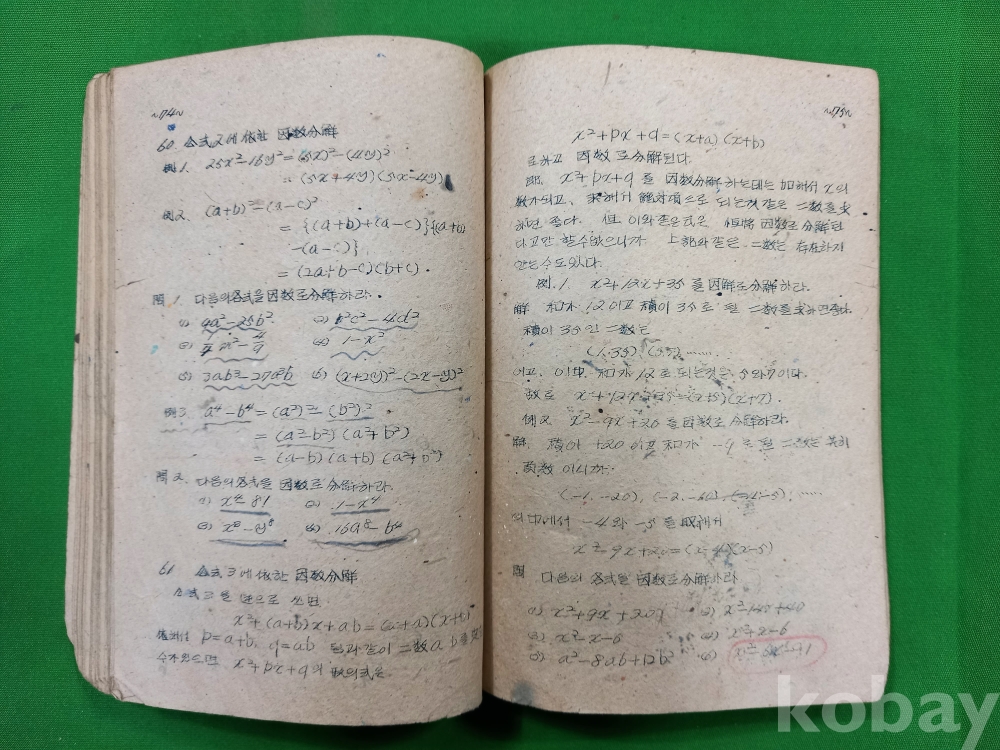 ~74~
60. 公式2에 依한 因数分解
例1. 25x²-16y²=(5x)²-(4y)²
=(5x+4y)(5x-4y)
例2. (a+b)²-(a-c)²
={(a+b)+(a-c)}{(a+b)
-(a-c)}
=(2a+b-c)(b+c).
問1. 다음의 各式을 因数로 分解하라.
(1) 9a²-25b² (2) b²c²-4d²
(4) 1-x²
(5) 3ab²-27a³b (6) (x+2y)²-(2x-y)²
例3. a⁴-b⁴=(a²)²-(b²)²
=(a²-b²)(a²+b²)
=(a-b)(a+b)(a²+b²)
問2. 다음의 各式을 因数로 分解하라.
(1) x⁴-81 (2) 1-x⁴
(3) x⁸-y⁸ (4) 16a⁸-b⁴
61 公式3에 依한 因数分解
公式3을 逆으로 쓰면
x²+(a+b)x+ab=(x+a)(x+b)
p=a+b, q=ab 와 같이 二数 a b를
수가 있으면 x²+px+q의 形의 式은
~75~
x²+px+q=(x+a)(x+b)
로하고 因数로 分解된다.
即. x²+px+q를 因数分解하는데는 加해서 x의
数가 되고, 乘해서 絶対項으로 되는것 같은 二数를 求
하면 좋다. 但 이와 같은 式은 恒時 因数로 分解된
다고만 할수 없으니까 上記와 같은 二数는 存在하지
안는 수도 있다.
例.1. x²+12x+35를 因解로 分解하라.
解 和가 12이고 積이 35로 될 二数를 求하면 좋다.
積이 35인 二数는
(1.35) (5.7) ......
이고, 이中 和가 12로 되는것은 5와 7이다.
故로 x²+12x+35=(x+5)(x+7).
例2. x²-9x+20을 因数로 分解하라.
解. 積이 +20이고 和가 -9로 될 二数는
負数이니까.
(-1,-20), (-2,-10), (-4,-5), ......
의 中에서 -4와 -5를 取해서
x²-9x+20=(x-4)(x-5)
問 다음의 各式을 因数로 分解하라
(1) x²+9x+20 (2)
(3) x²-x-6 (4) x²+x-6
(5) a²-8ab+12b² (6)
kobay